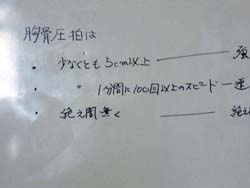 胸骨圧拍は
・ 少なくとも 5cm以上 ―― 強
・ 〃 1分間に100回以上のスピード ― 速
・ 絶え間無く ―― 絶え